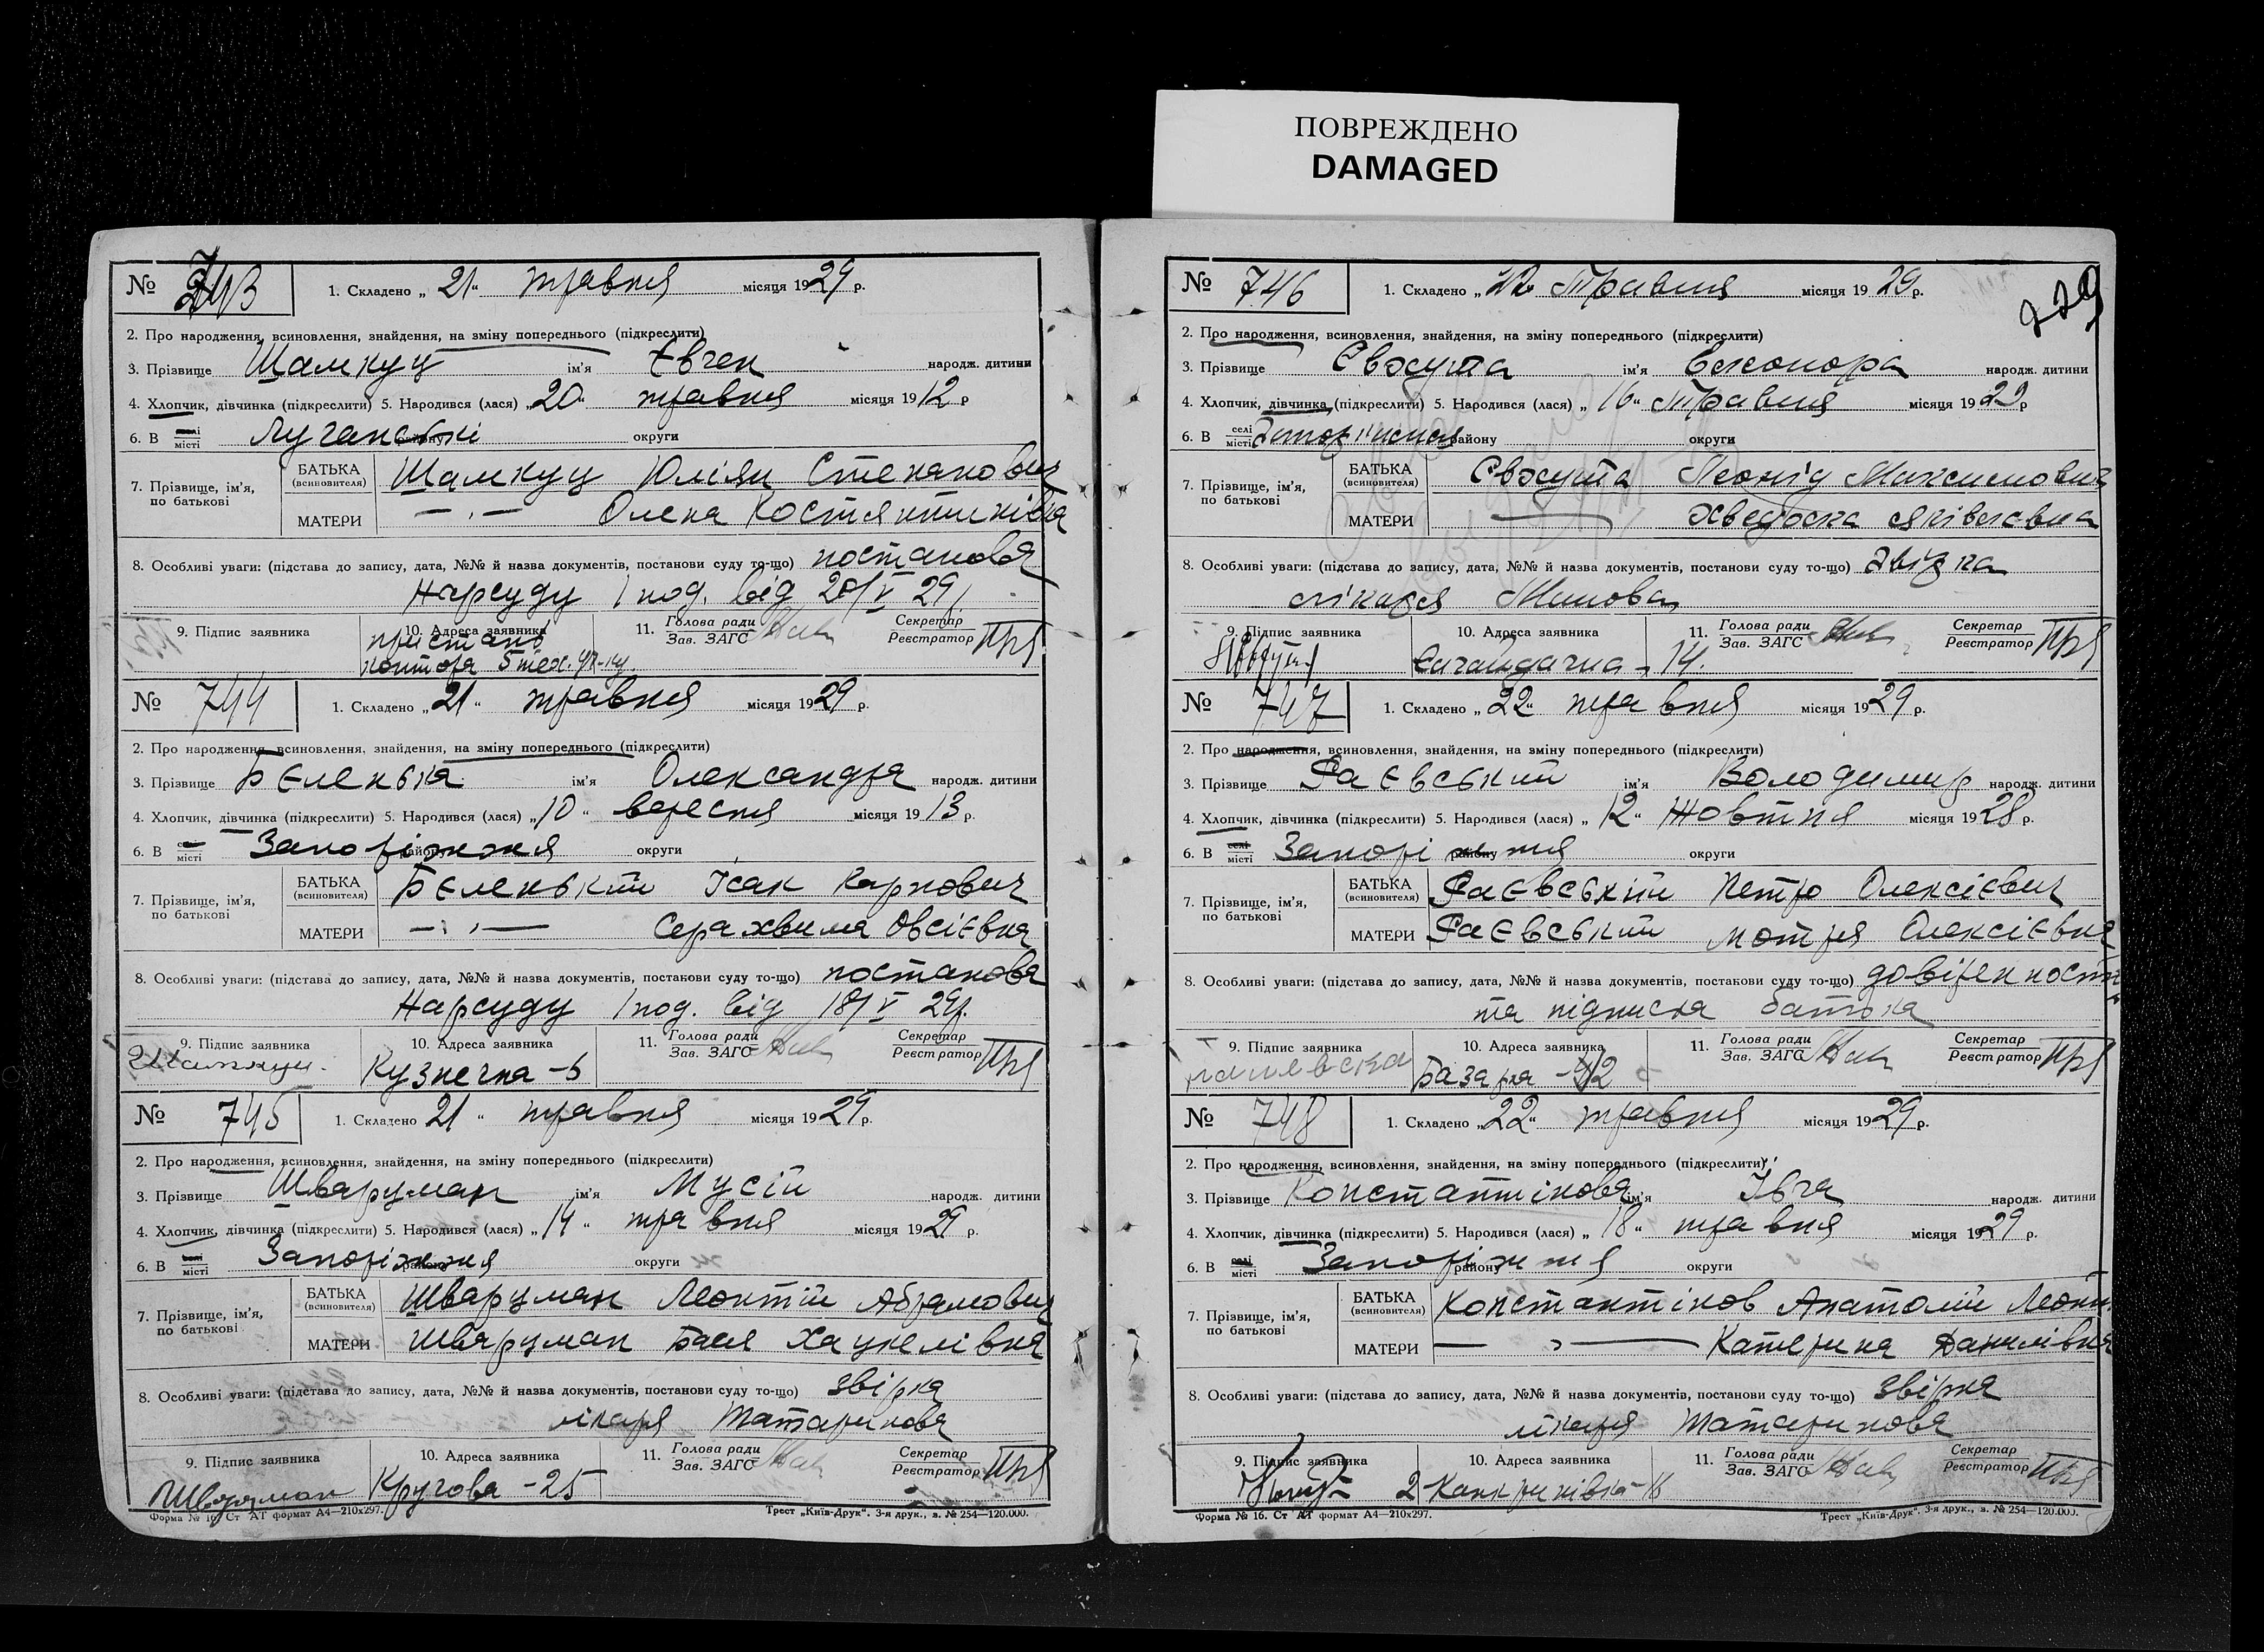 ПОВРЕЖДЕНО
DAMAGED
№ 743 1. Складено „ 21 “ травня місяця 1929 р.
2. Про народження, всиновлення, знайдення, на зміну попереднього (підкреслити)
3. Прізвище Шамкуц ім'я Євген народж. дитини
4. Хлопчик, дівчинка (підкреслити) 5. Народився (лася) „ 20 “ травня місяця 1912 р
6. В селі місті Луганські району округи
7. Прізвище, ім'я, по батькові
БАТЬКА (всиновителя) Шамкуц Юліян Степанович
МАТЕРИ —„— Олена Костянтинівна
8. Особливі уваги: (підстава до запису, дата, №№ й назва документів, постанови суду то-що) постанова
Нарсуду 1 под. від 20/V 29р.
9. Підпис заявника 10. Адреса заявника 11. Голова ради Зав. ЗАГС Секретар Реєстратор
пристань
контора 5 тех. уч-ку.
№ 744 1. Складено „ 21 “ травня місяця 1929 р.
2. Про народження, всиновлення, знайдення, на зміну попереднього (підкреслити)
3. Прізвище Бєленька ім'я Олександра народж. дитини
4. Хлопчик, дівчинка (підкреслити) 5. Народився (лася) „ 10 “ вересня місяця 1913 р.
6. В селі місті Запоріжжя району округи
7. Прізвище, ім'я, по батькові
БАТЬКА (всиновителя) Бєленький Ісак Карпович
МАТЕРИ —„— Серахвима Овсієвна
8. Особливі уваги: (підстава до запису, дата, №№ й назва документів, постанови суду то-що) постанова
Нарсуду 1 под. від 18/V 29р.
9. Підпис заявника 10. Адреса заявника 11. Голова ради Зав. ЗАГС Секретар Реєстратор
Кузнечна -5
№ 745 1. Складено 21 “ травня місяця 1929 р.
2. Про народження, всиновлення, знайдення, на зміну попереднього (підкреслити)
3. Прізвище Шварцман ім'я Мусій народж. дитини
4. Хлопчик, дівчинка (підкреслити) 5. Народився (лася) „ 14 “ травня місяця 1929 р.
6. В селі місті Запоріжжя району округи
7. Прізвище, ім'я, по батькові
БАТЬКА (всиновителя) Шварцман Леонтій Абрамович
МАТЕРИ Шварцман Бася Хацкелівна
8. Особливі уваги: (підстава до запису, дата, №№ й назва документів, постанови суду то-що) звірка
лікаря Татаринова
9. Підпис заявника 10. Адреса заявника 11. Голова ради Зав. ЗАГС Секретар Реєстратор
Шварцман Кругова -25
Форма № 16. Ст АТ формат А4—210х297. Трест „Київ-Друк“. З-я друк., з. № 254—120.000.
229
№ 746 1. Складено „ 22 “ Травня місяця 1929 р.
2. Про народження, всиновлення, знайдення, на зміну попереднього (підкреслити)
3. Прізвище Євжута ім'я народж. дитини
4. Хлопчик, дівчинка (підкреслити) 5. Народився (лася) „ 16 “ Травня місяця 1929 р
6. В селі місті району округи
7. Прізвище, ім'я, по батькові
БАТЬКА (всиновителя) Євжута Леонід Максимович
МАТЕРИ — Хведоска Яківлевна
8. Особливі уваги: (підстава до запису, дата, №№ й назва документів, постанови суду то-що) звірка
лікаря
9. Підпис заявника 10. Адреса заявника 11. Голова ради Зав. ЗАГС Секретар Реєстратор
Сагайдачна - 14.
№ 747 1. Складено „ 22 “ травня місяця 1929 р.
2. Про народження, всиновлення, знайдення, на зміну попереднього (підкреслити)
3. Прізвище Раєвський ім'я Володимир народж. дитини
4. Хлопчик, дівчинка (підкреслити) 5. Народився (лася) „ 12 “ Жовтня місяця 1928 р.
6. В селі місті Запоріжжя району округи
7. Прізвище, ім'я, по батькові
БАТЬКА (всиновителя) Раєвський Петро Олексієвич
МАТЕРИ Раєвський Мотря Олексієвна
8. Особливі уваги: (підстава до запису, дата, №№ й назва документів, постанови суду то-що) довіренность
та підписка батька
9. Підпис заявника 10. Адреса заявника 11. Голова ради Зав. ЗАГС Секретар Реєстратор
Базарна - 42
№ 748 1. Складено „ 22 “ травня місяця 1929 р.
2. Про народження, всиновлення, знайдення, на зміну попереднього (підкреслити)
3. Прізвище Константінова ім'я Івга народж. дитини
4. Хлопчик, дівчинка (підкреслити) 5. Народився (лася) „ 18 “ травня місяця 1929 р.
6. В селі місті Запоріжжя району округи
7. Прізвище, ім'я, по батькові
БАТЬКА (всиновителя) Константінов Анатолій Леон.
МАТЕРИ —„— Катерина Данилівна
8. Особливі уваги: (підстава до запису, дата, №№ й назва документів, постанови суду то-що) звірка
лікаря Татаринова
9. Підпис заявника 10. Адреса заявника 11. Голова ради Зав. ЗАГС Секретар Реєстратор
2-Канкринівка-
Форма № 16. Ст АТ формат А4—210х297. Трест „Київ-Друк“. З-я друк., з. № 254—120.000.